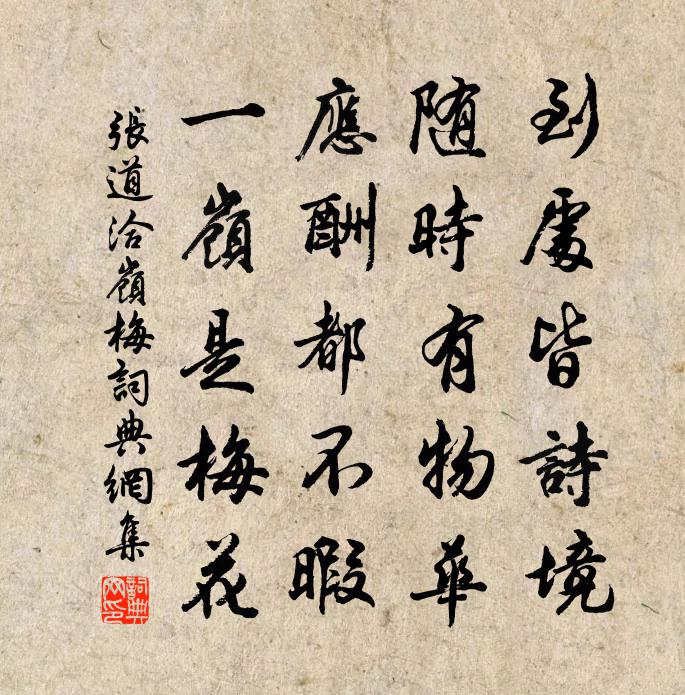 到處皆詩境
随時有物華
應酬都不暇
一嶺是梅花
張道洽嶺梅詞典網集
詞典
网印